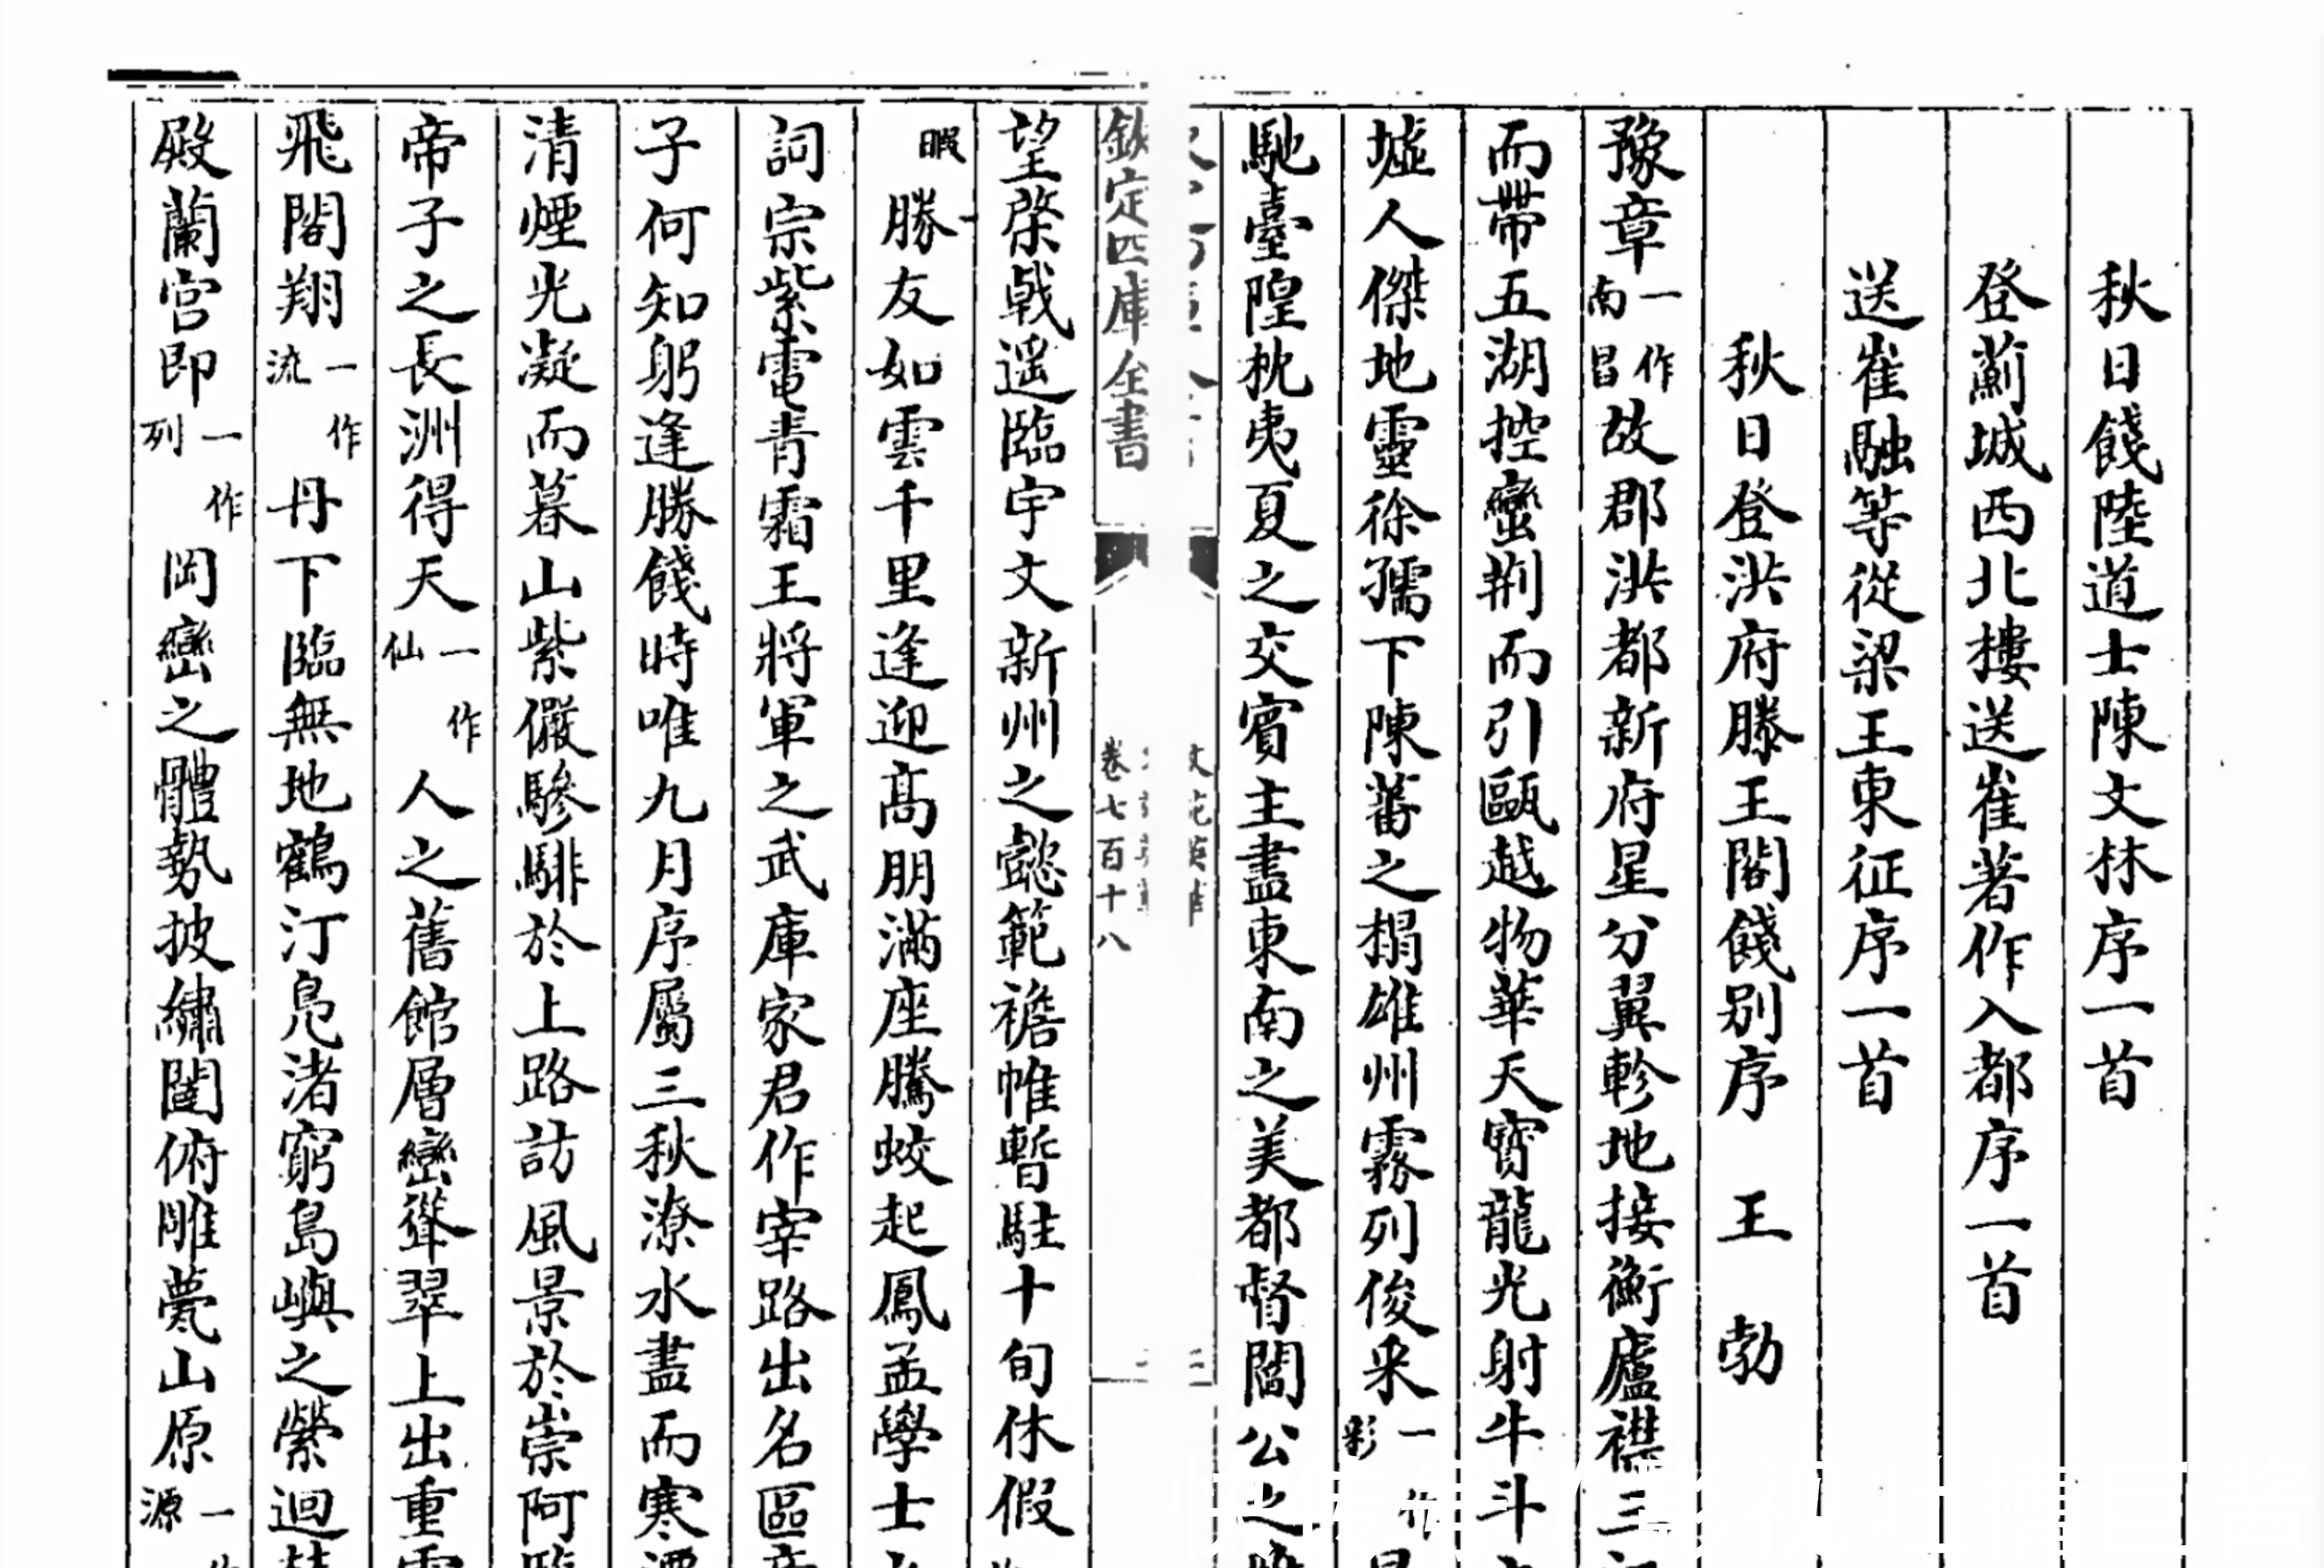 秋日餞陸道士陳文林序一首
登薊城西北樓送崔著作入都序一首
送崔融等從梁王東征序一首
秋日登洪府滕王閣餞别序 王勃
豫章一作南昌故郡洪都新府星分翼軫地接衡廬襟三
而帶五湖控蠻荆而引甌越物華天寶龍光射牛斗
墟人傑地靈徐孺下陳蕃之榻雄州霧列俊采一作彩
馳臺隍枕夷夏之交賓主盡東南之美都督閻公之
欽定四庫全書 卷七百十八
望棨戟遥臨宇文新州之懿範襜帷暫駐十旬休假
暇勝友如雲千里逢迎髙朋滿座騰蛟起鳳孟學士
詞宗紫電青霜王將軍之武庫家君作宰路出名區
子何知躬逢勝餞時唯九月序屬三秋潦水盡而寒
清煙光凝而暮山紫儼驂騑於上路訪風景於崇阿
帝子之長洲得天一作仙人之舊館層巒聳翠上出重
飛閣翔一作流丹下臨無地鶴汀鳧渚窮島嶼之縈迴
殿蘭宫即一作列岡巒之體勢披繡闥俯雕甍山原一源